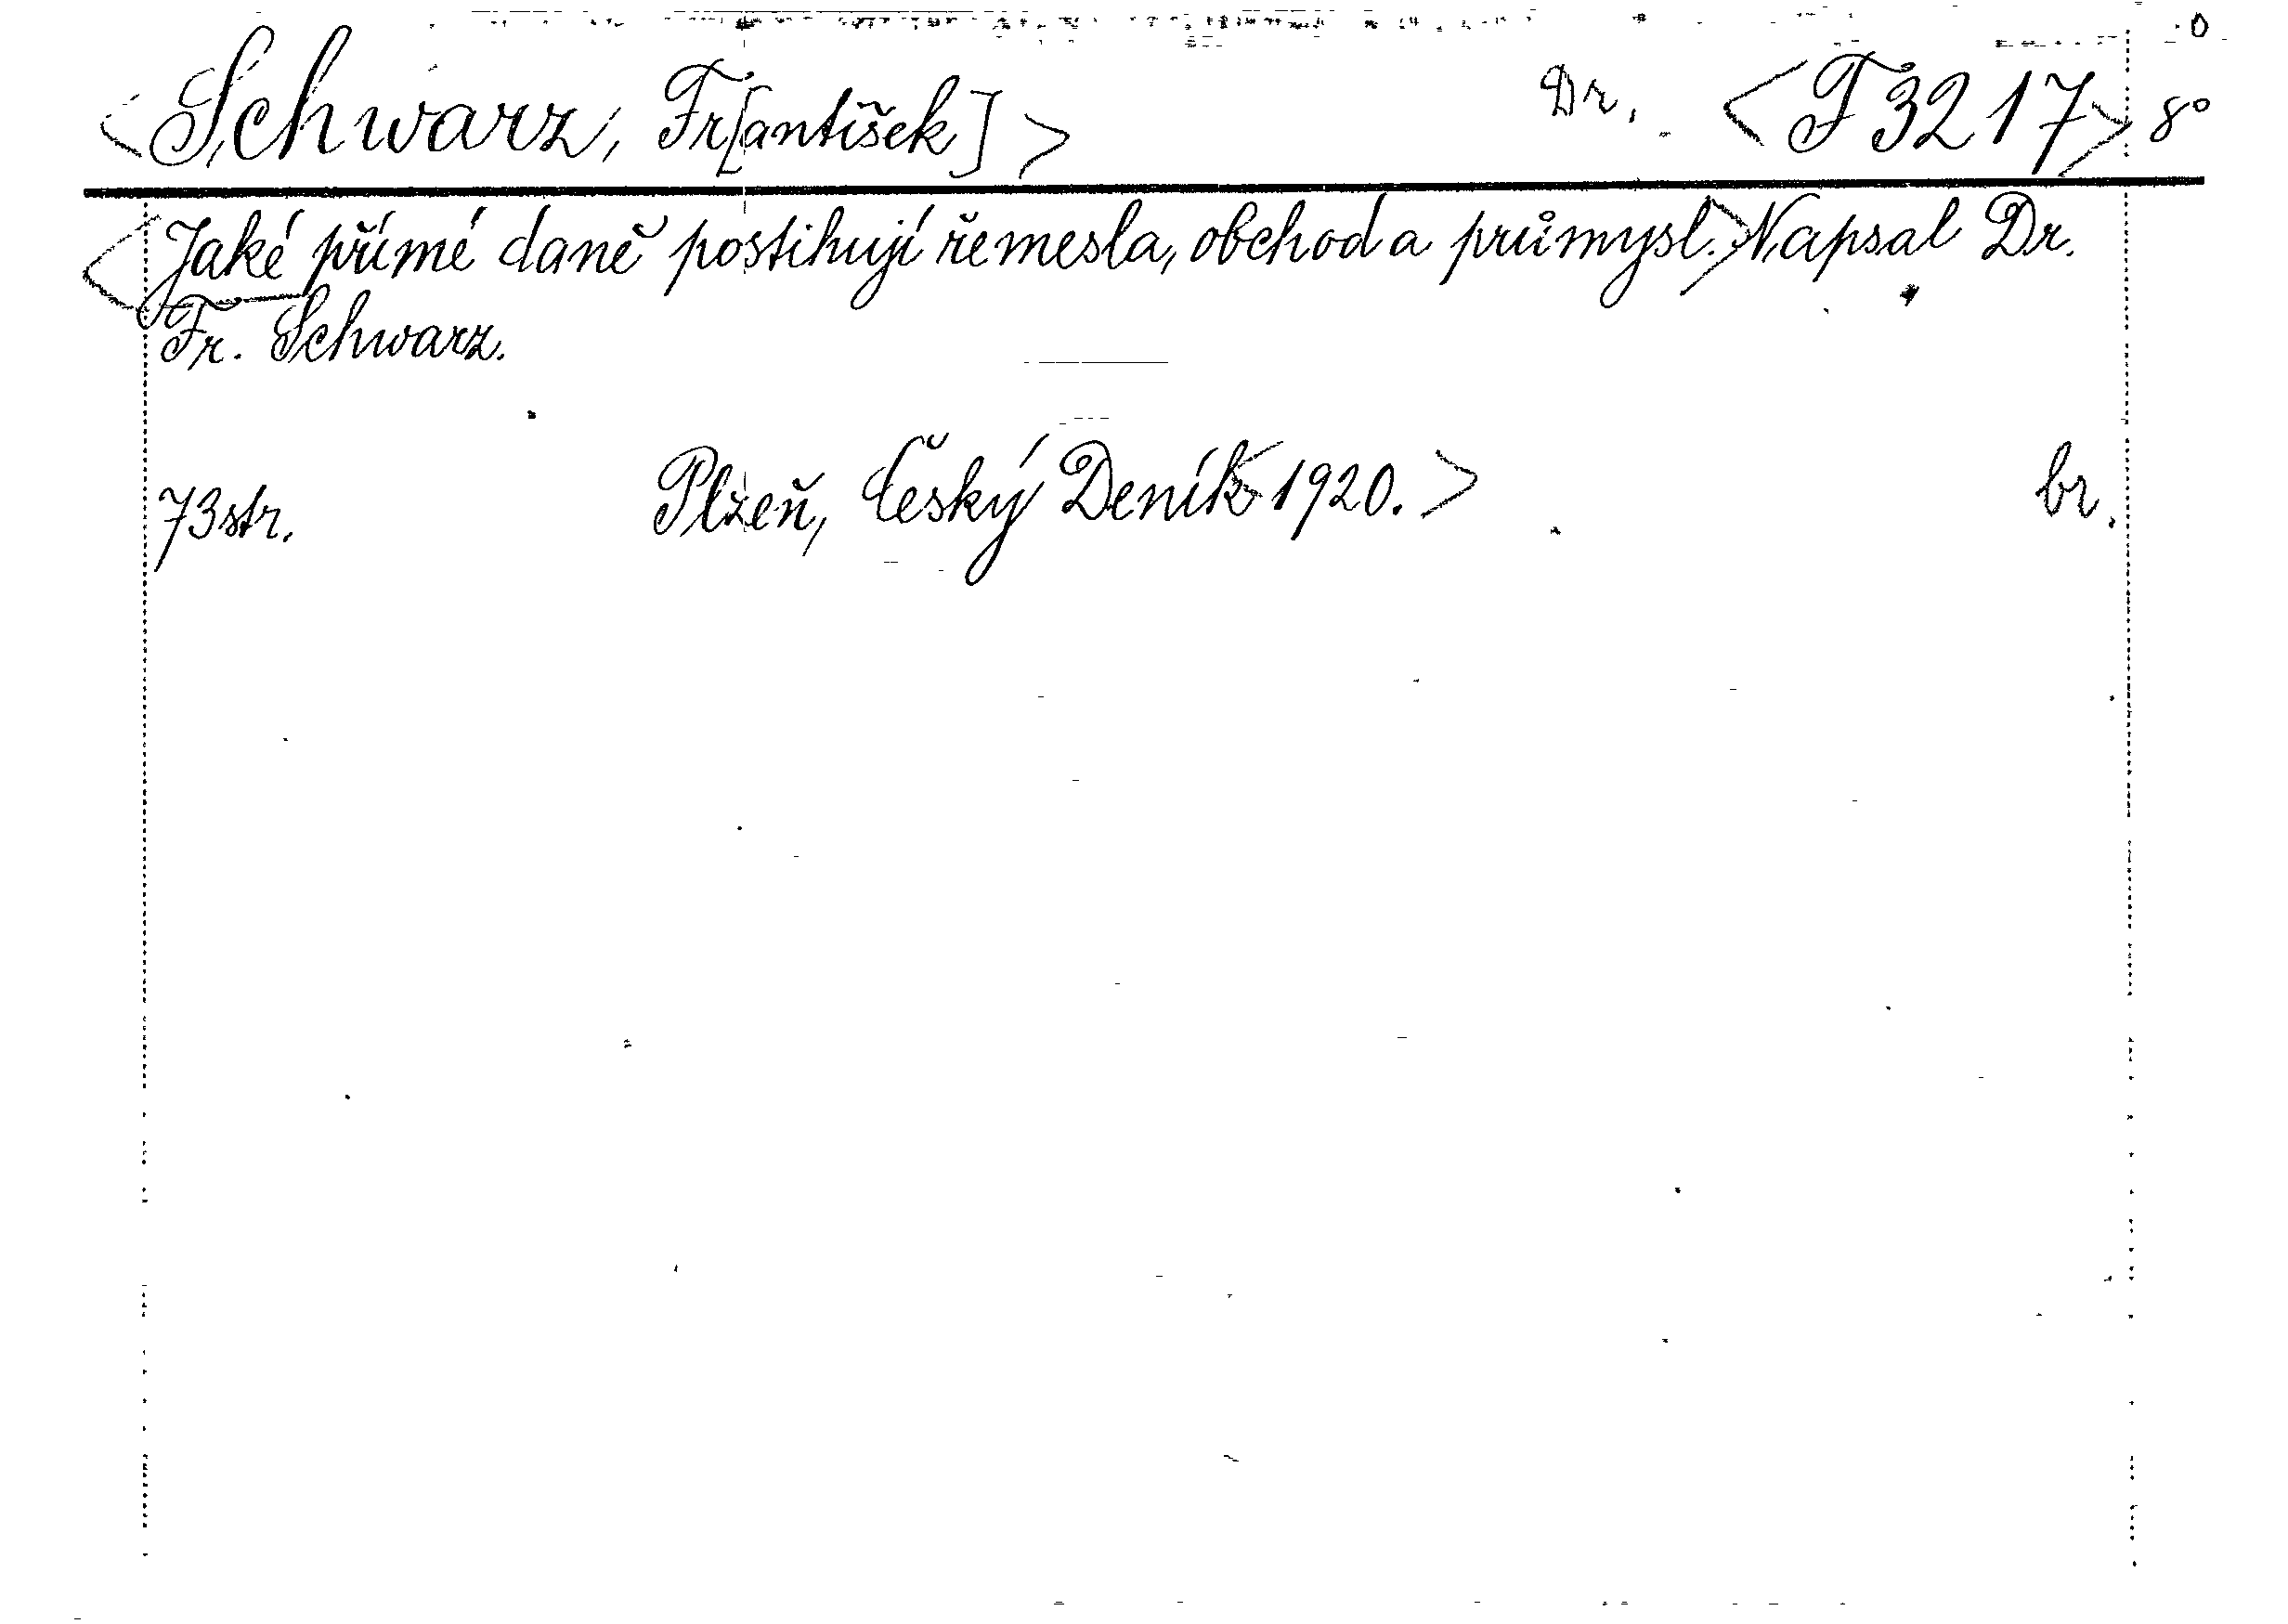 <Schwarz, Fr[antišek]> Dr. <F 3217> 8°
<Jaké přímé daně postihují řemesla, obchod a průmysl.> Napsal Dr.
Fr. Schwarz.
73 str. Plzeň, Český Deník <1920.> br.